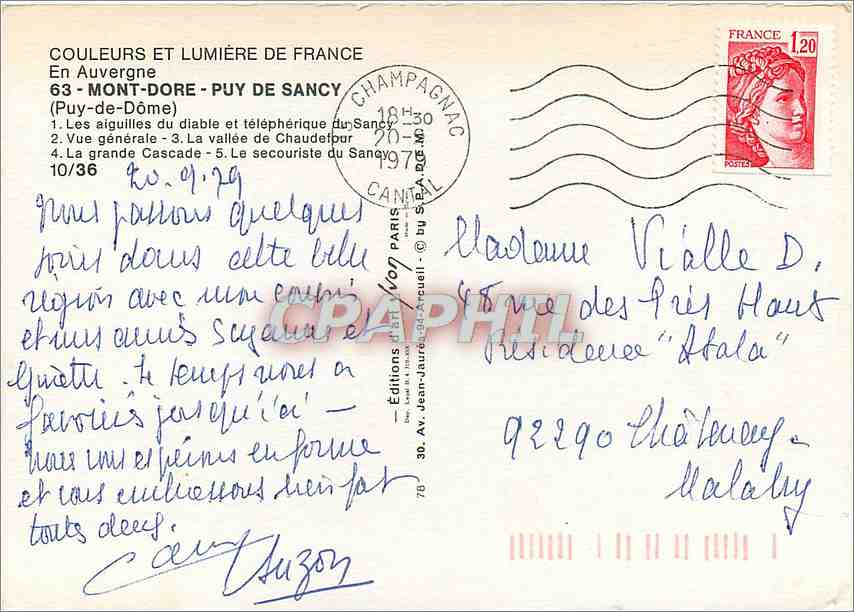 COULEURS ET LUMIÈRE DE FRANCE
En Auvergne
63 - MONT-DORE - PUY DE SANCY
(Puy-de-Dôme)
1. Les aiguilles du diable et téléphérique du Sancy
2. Vue générale - 3. La vallée de Chaudefour
4. La grande Cascade - 5. Le secouriste du Sancy
10/36
CHAMPAGNAC
18H30
20-9
1979
CANTAL
FRANCE 1,20
POSTES
20.9.79
Nous passons quelques
jours dans cette belle
région avec mon cousin
et mes amis Suzanne et
Ginette. Le temps nous a
favorisés jusqu'ici -
Nous vous espérons en forme
et vous embrassons bien fort
toutes deux.
Auzon
— Éditions d'art Yvon PARIS
30. Av. Jean-Jaurès-94-Arcueil - © by S.P.A.D.E.M
78
Madame Vialle D.
48 rue des Prés Hauts
Résidence "Atala"
92290 Châtenay-
Malabry
CPAPHIL